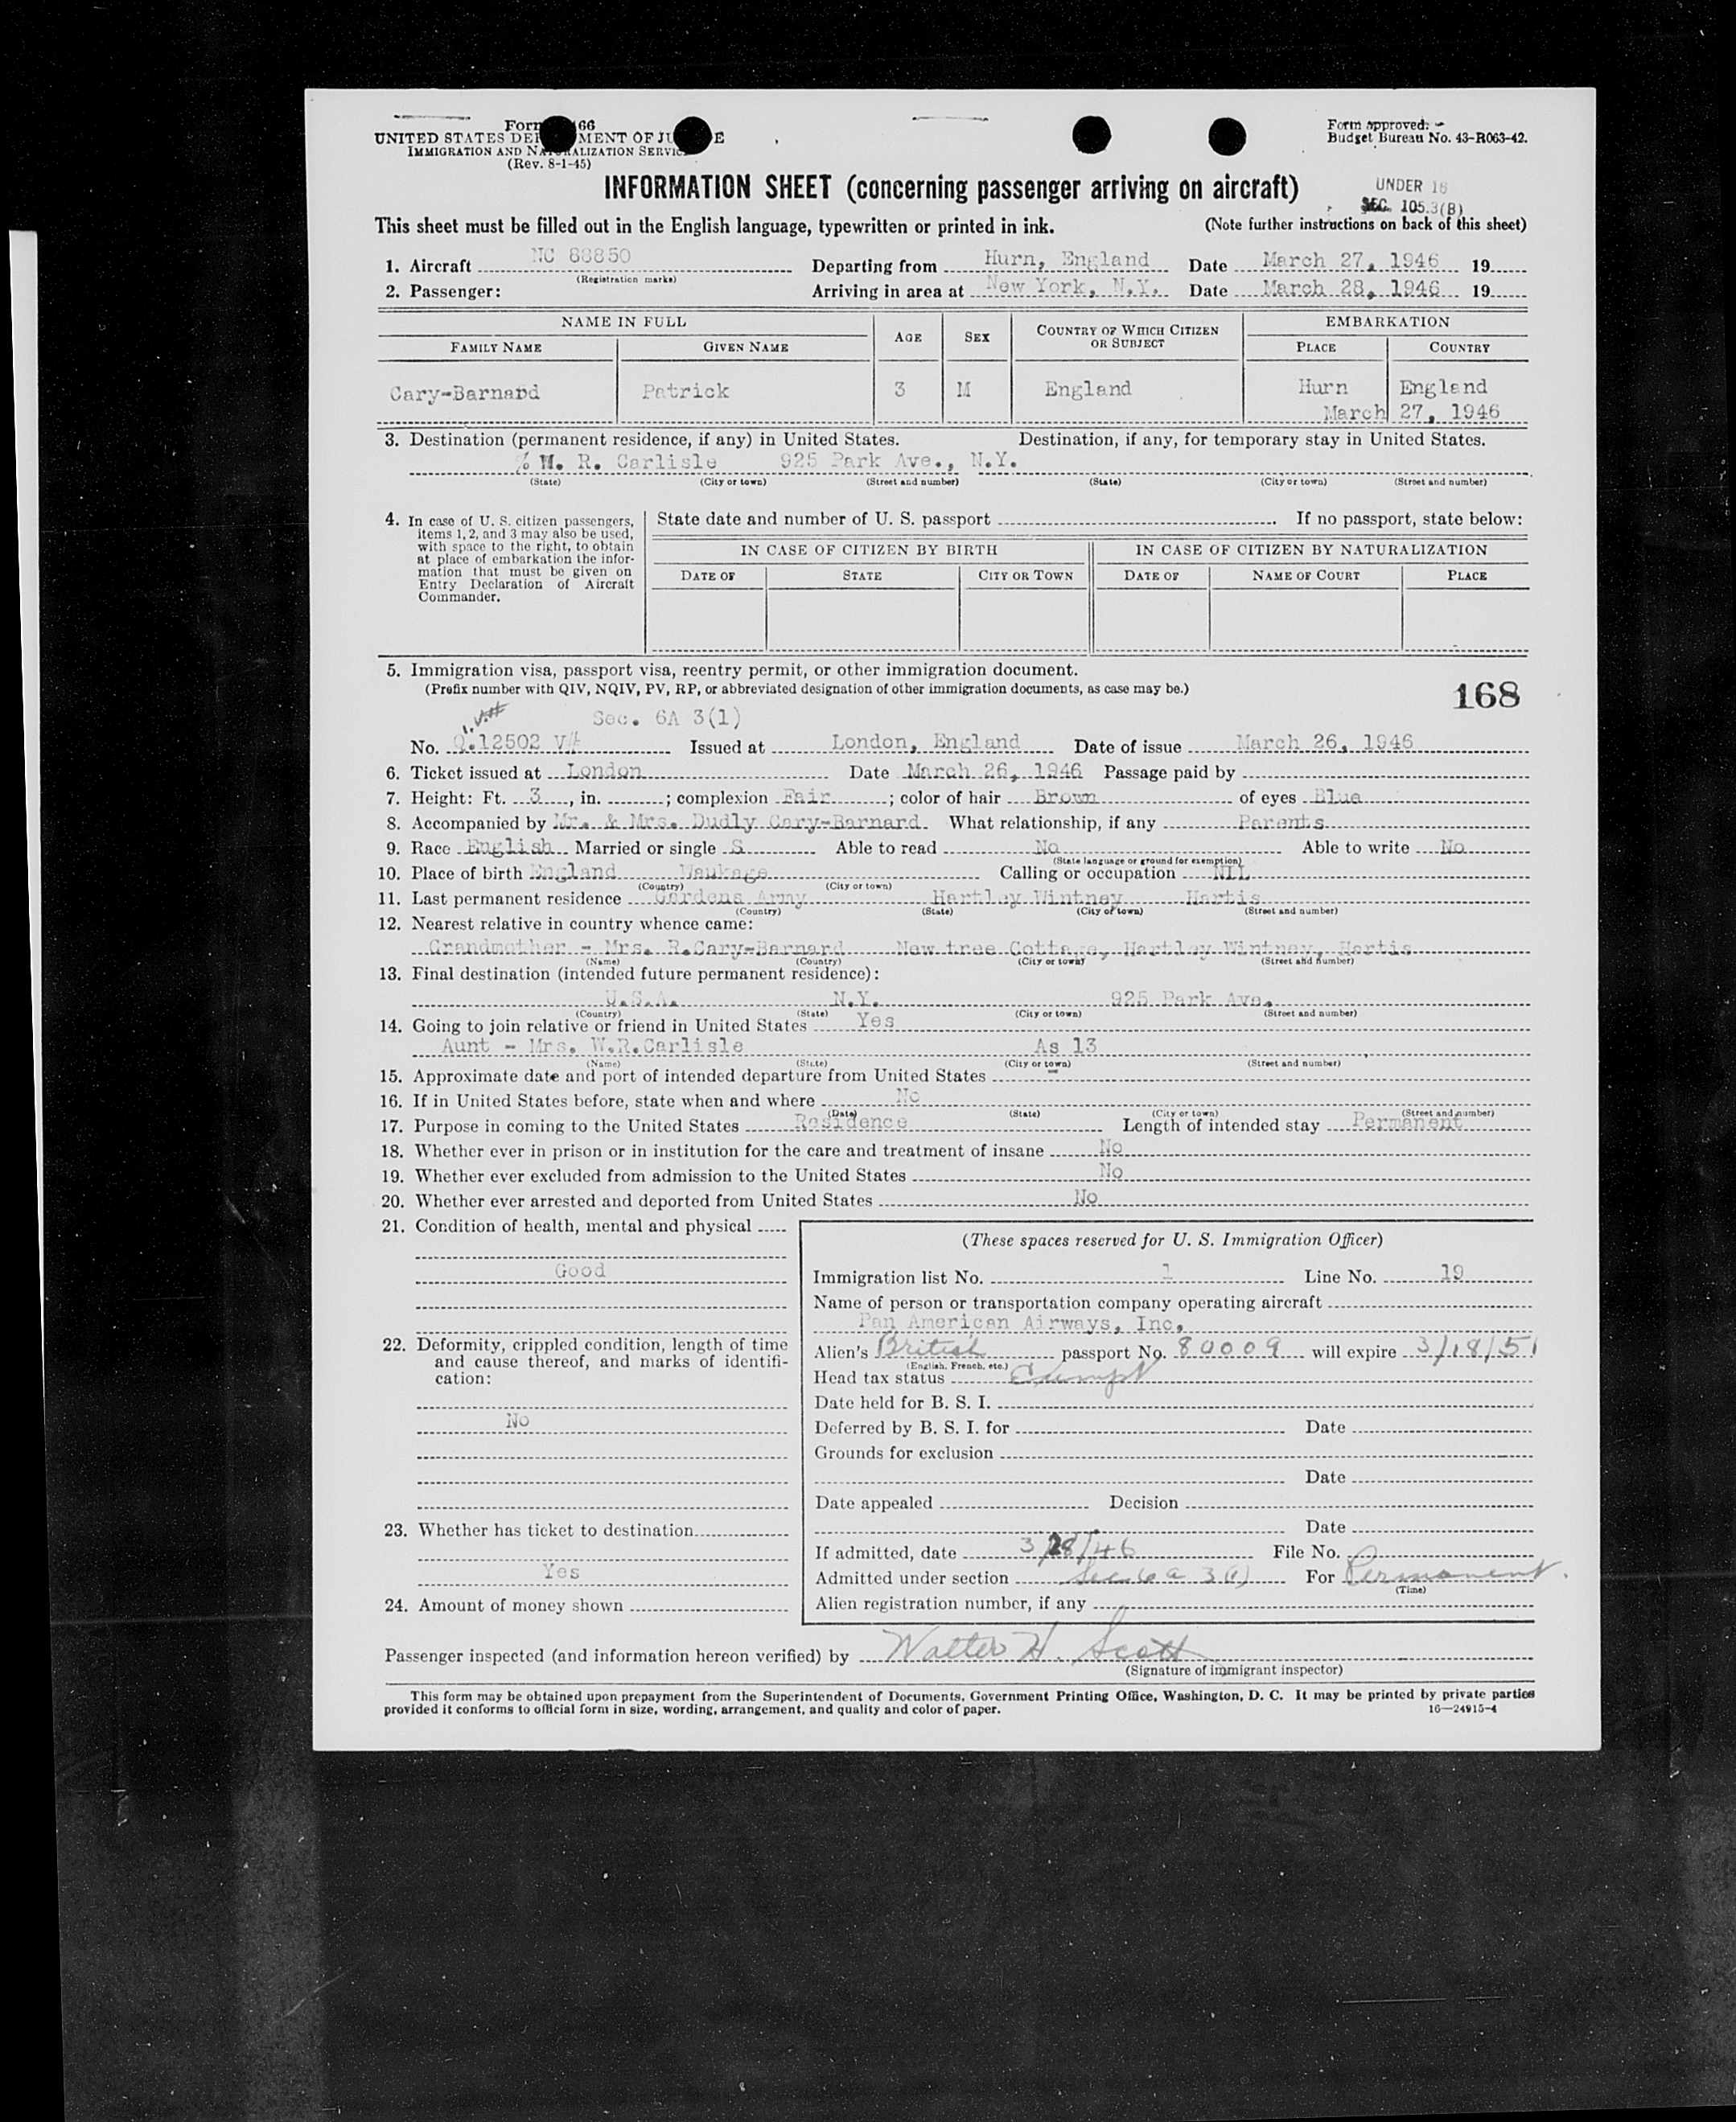 Form 66
UNITED STATES DEP MENT OF JU E
IMMIGRATION AND NATURALIZATION SERVICE
(Rev. 8-1-45)
Form approved:
Budget Bureau No. 43-R063-42.
INFORMATION SHEET (concerning passenger arriving on aircraft)
UNDER 16
SEC. 105.3(B)
This sheet must be filled out in the English language, typewritten or printed in ink. (Note further instructions on back of this sheet)
1. Aircraft NC 88850 Departing from Hurn, England Date March 27, 1946 19
(Registration marks)
2. Passenger: Arriving in area at New York, N.Y. Date March 28, 1946 19
NAME IN FULL AGE SEX COUNTRY OF WHICH CITIZEN OR SUBJECT EMBARKATION
FAMILY NAME GIVEN NAME PLACE COUNTRY
Cary-Barnard Patrick 3 M England Hurn England
March 27, 1946
3. Destination (permanent residence, if any) in United States. Destination, if any, for temporary stay in United States.
% W. R. Carlisle 925 Park Ave., N.Y.
(State) (City or town) (Street and number) (State) (City or town) (Street and number)
4. In case of U. S. citizen passengers, items 1, 2, and 3 may also be used, with space to the right, to obtain at place of embarkation the information that must be given on Entry Declaration of Aircraft Commander.
State date and number of U. S. passport If no passport, state below:
IN CASE OF CITIZEN BY BIRTH IN CASE OF CITIZEN BY NATURALIZATION
DATE OF STATE CITY OR TOWN DATE OF NAME OF COURT PLACE
5. Immigration visa, passport visa, reentry permit, or other immigration document.
(Prefix number with QIV, NQIV, PV, RP, or abbreviated designation of other immigration documents, as case may be.)
168
Sec. 6A 3(1)
No. Q.12502 Issued at London, England Date of issue March 26, 1946
6. Ticket issued at London Date March 26, 1946 Passage paid by
7. Height: Ft. 3, in. ; complexion Fair ; color of hair Brown of eyes Blue
8. Accompanied by Mr. & Mrs. Dudly Cary-Barnard What relationship, if any Parents
9. Race English Married or single S Able to read No Able to write No
(State language or ground for exemption)
10. Place of birth England Calling or occupation NIL
(Country) (City or town)
11. Last permanent residence Gardens Army Hartley Wintney Hartis
(Country) (State) (City or town) (Street and number)
12. Nearest relative in country whence came:
Grandmother - Mrs. R.Cary-Barnard New tree Cottage, Hartley Wintney, Hartis
(Name) (Country) (City or town) (Street and number)
13. Final destination (intended future permanent residence):
U.S.A. N.Y. 925 Park Ave.
(Country) (State) (City or town) (Street and number)
14. Going to join relative or friend in United States Yes
Aunt - Mrs. W.R.Carlisle As 13
(Name) (State) (City or town) (Street and number)
15. Approximate date and port of intended departure from United States
16. If in United States before, state when and where No
(Date) (State) (City or town) (Street and number)
17. Purpose in coming to the United States Residence Length of intended stay Permanent
18. Whether ever in prison or in institution for the care and treatment of insane No
19. Whether ever excluded from admission to the United States No
20. Whether ever arrested and deported from United States No
21. Condition of health, mental and physical
Good
22. Deformity, crippled condition, length of time and cause thereof, and marks of identification:
No
23. Whether has ticket to destination
Yes
24. Amount of money shown
(These spaces reserved for U. S. Immigration Officer)
Immigration list No. 1 Line No. 19
Name of person or transportation company operating aircraft
Pan American Airways, Inc.
Alien's British passport No. 80009 will expire 3/18/51
(English, French, etc.)
Head tax status Exempt
Date held for B. S. I.
Deferred by B. S. I. for Date
Grounds for exclusion
Date
Date appealed Decision
Date
If admitted, date 3/28/46 File No.
Admitted under section Sec. 6 a 3(1) For Permanent.
(Time)
Alien registration number, if any
Passenger inspected (and information hereon verified) by Walter H. Scott
(Signature of immigrant inspector)
This form may be obtained upon prepayment from the Superintendent of Documents, Government Printing Office, Washington, D. C. It may be printed by private parties
provided it conforms to official form in size, wording, arrangement, and quality and color of paper. 16—24915-4